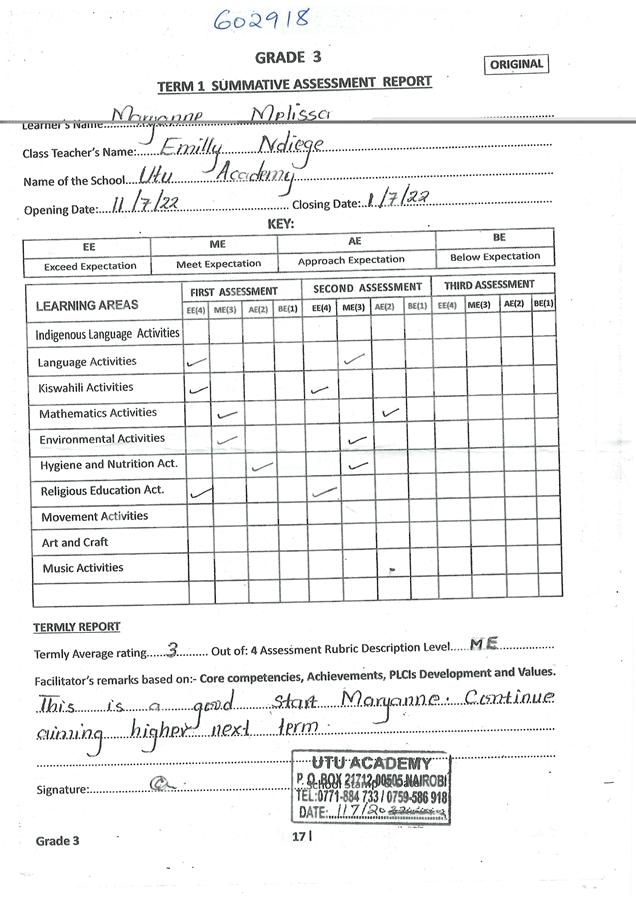 602918
GRADE 3
ORIGINAL
TERM 1 SUMMATIVE ASSESSMENT REPORT
Learner's Name Maryanne Melissa
Class Teacher's Name: Emilly Ndiege
Name of the School Utu Academy
Opening Date: 11/7/22 Closing Date: 1/7/22
KEY:
EE ME AE BE
Exceed Expectation Meet Expectation Approach Expectation Below Expectation
LEARNING AREAS FIRST ASSESSMENT SECOND ASSESSMENT THIRD ASSESSMENT
EE(4) ME(3) AE(2) BE(1) EE(4) ME(3) AE(2) BE(1) EE(4) ME(3) AE(2) BE(1)
Indigenous Language Activities
Language Activities ✓ ✓
Kiswahili Activities ✓ ✓
Mathematics Activities ✓ ✓
Environmental Activities ✓ ✓
Hygiene and Nutrition Act. ✓ ✓
Religious Education Act. ✓ ✓
Movement Activities
Art and Craft
Music Activities
TERMLY REPORT
Termly Average rating 3 Out of: 4 Assessment Rubric Description Level ME
Facilitator's remarks based on:- Core competencies, Achievements, PLCIs Development and Values.
This is a good start Maryanne. Continue
aiming higher next term.
UTU ACADEMY
P. O. BOX 21712-00505 NAIROBI
TEL: 0771-884 733 / 0759-586 918
Signature:
DATE: 1/7/20
Grade 3 17 |